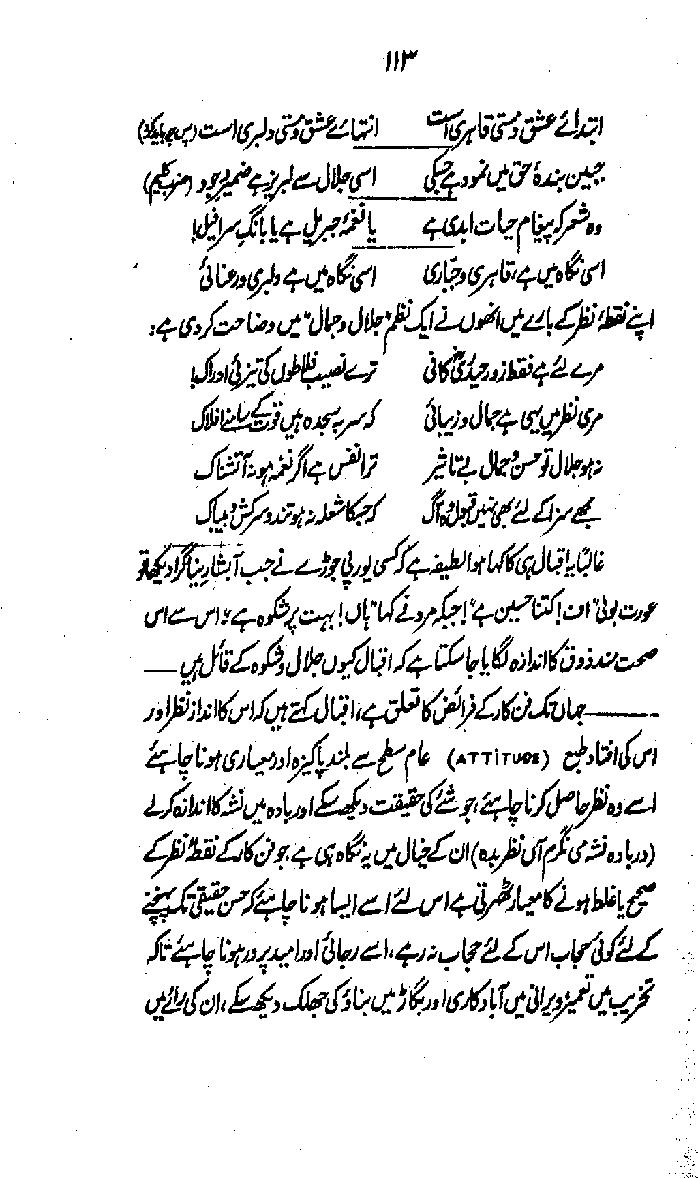 ۱۱۳
ابتدائے عشق و مستی قاہری است انتہائے عشق و مستی دلبری است (پس چہ باید کرد)
جبین بندۂ حق میں نمود ہے جسکی اسی جلال سے لبریز ہے ضمیر وجود (ضرب کلیم)
وہ شعر کہ پیغام حیات ابدی ہے یا نغمۂ جبریل ہے یا بانگ سرافیل!
اسی نگاہ میں ہے، قاہری و جبّاری اسی نگاہ میں ہے دلبری و رعنائی
اپنے نقطۂ نظر کے بارے میں انھوں نے ایک نظم "جلال و جمال" میں وضاحت کر دی ہے:
مرے لئے ہے فقط زور حیدری کافی ترے نصیب فلاطوں کی تیزئی ادراک!
مری نظر میں یہی ہے جمال و زیبائی کہ سر بہ سجدہ ہیں قوت کے سامنے افلاک
نہ ہو جلال تو حسن و جمال بے تاثیر ترا نفس ہے اگر نغمہ ہو نہ آتشناک
مجھے سزا کے لئے بھی نہیں قبول وہ آگ کہ جسکا شعلہ نہ ہو تند و سرکش و بیباک
غالباً یا اقبال ہی کا کہا ہوا لطیفہ ہے کہ کسی یورپی جوڑے نے جب آبشار نیاگرا دیکھا تو
عورت بولی "اف! کتنا حسین ہے"! جبکہ مرد نے کہا "ہاں! بہت پرشکوہ ہے؛ اس سے اس
صحت مند ذوق کا اندازہ لگایا جا سکتا ہے کہ اقبال کیوں جلال و شکوہ کے قائل ہیں ——
—— جہاں تک فن کار کے فرائض کا تعلق ہے، اقبال کہتے ہیں کہ اس کا انداز نظر اور
اس کی افتاد طبع (ATTITUDE) عام سطح سے بلند پاکیزہ اور معیاری ہونا چاہئے
اسے وہ نظر حاصل کرنا چاہئے، جو شئے کی حقیقت دیکھ سکے اور بادہ میں نشہ کا اندازہ کرلے
(در بادہ نشہ می نگرم آں نظر بدہ) ان کے خیال میں یہ نگاہ ہی ہے جو فن کار کے نقطۂ نظر کے
صحیح یا غلط ہونے کا معیار ٹھرتی ہے اس لئے اسے ایسا ہونا چاہئے کہ حسن حقیقی تک پہنچنے
کے لئے کوئی حجاب اس کے لئے حجاب نہ رہے، اسے رجائی اور امید پرور ہونا چاہئے تاکہ
تخریب میں تعمیر ویرانی میں آباد کاری اور بگاڑ میں بناؤ کی جھلک دیکھ سکے، ان کی رائے میں